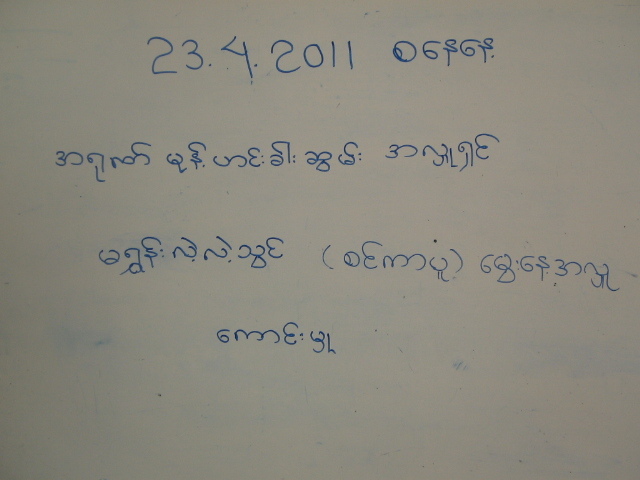 23.4.2011 စနေနေ့
အရုဏ် မုန့်ဟင်းခါး ဆွမ်း အလှူရှင်
မရွှန်းလဲ့လဲ့သွင် (စင်ကာပူ) မွေးနေ့အလှူ
ကောင်းမှု